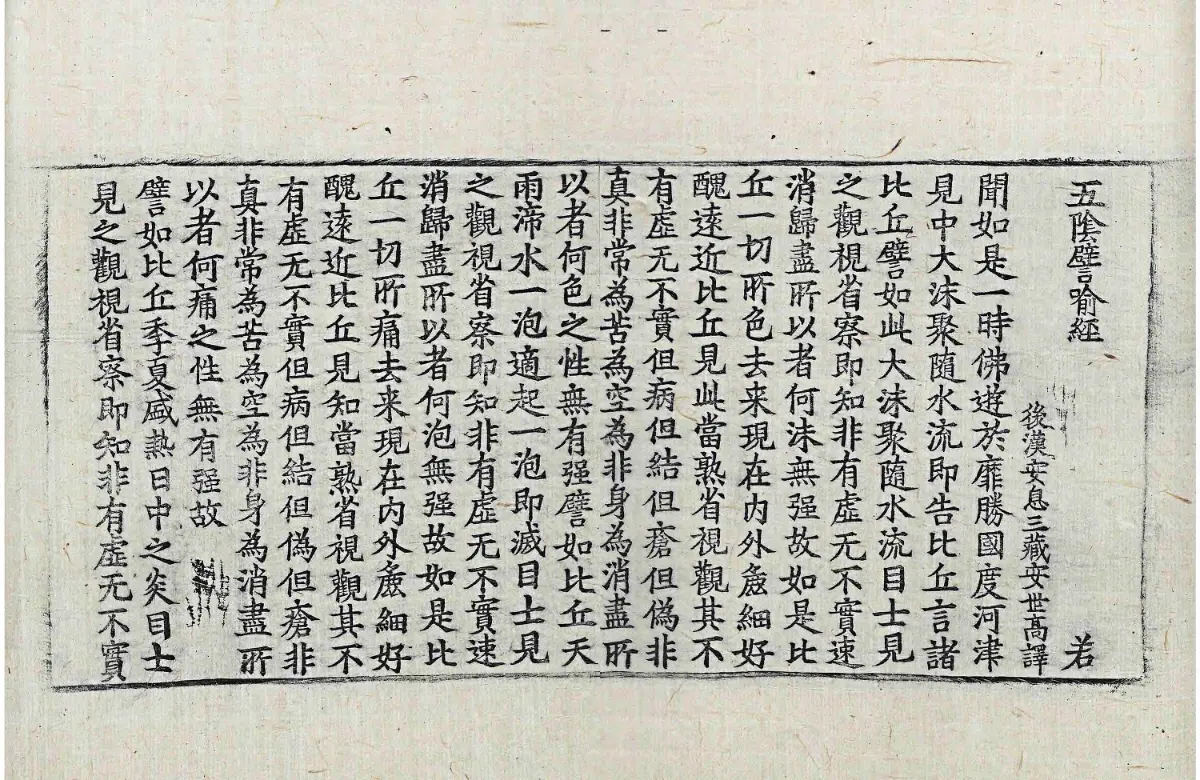 五陰譬喻經 若
後漢安息三藏安世高譯
聞如是一時佛遊於靡勝國度河津
見中大沫聚隨水流即告比丘言諸
比丘譬如此大沫聚隨水流目士見
之觀視省察即知非有虛无不實速
消歸盡所以者何沫無强故如是比
丘一切所色去来現在內外麁細好
醜遠近比丘見此當熟省視觀其不
有虛无不實但病但結但瘡但偽非
真非常為苦為空為非身為消盡所
以者何色之性無有强譬如比丘天
雨渧水一泡適起一泡即滅目士見
之觀視省察即知非有虛无不實速
消歸盡所以者何泡無强故如是比
丘一切所痛去来現在內外麁細好
醜遠近比丘見知當熟省視觀其不
有虛无不實但病但結但偽但瘡非
真非常為苦為空為非身為消盡所
以者何痛之性無有强故
譬如比丘季夏盛熱日中之炎目士
見之觀視省察即知非有虛无不實